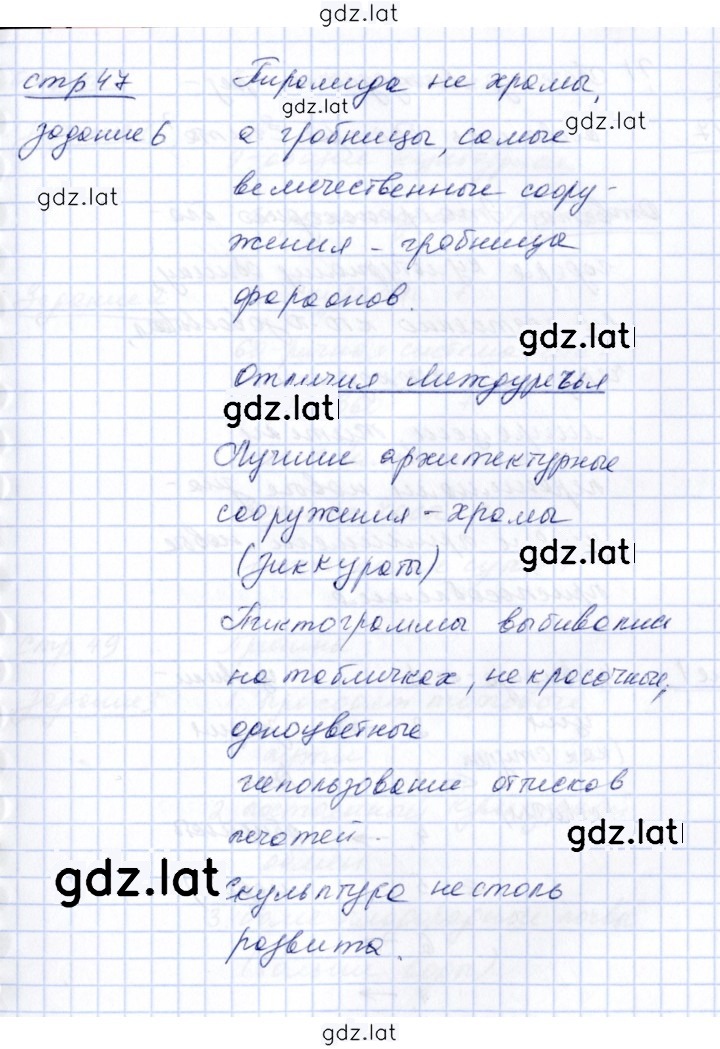 gdz.lat
стр 47 Пирамида не храмы,
gdz.lat
gdz.lat
задание 6 а гробницы, самые
gdz.lat
величественные соору-
жения - гробница
фараонов.
gdz.lat
Отличия Междуречья
gdz.lat
Лучшие архитектурные
сооружения - храмы
(зиккураты)
gdz.lat
Пиктограммы выбивали
на табличках, некрасочные,
одноцветные
использование оттисков
печатей.
gdz.lat
gdz.lat
Скульптура не столь
развита.
gdz.lat